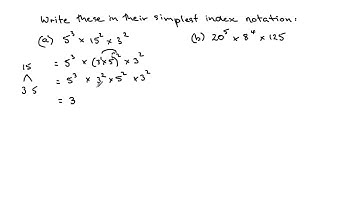 Write these in their simplest index notation:
(a) 5³ × 15² × 3²
(b) 20⁵ × 8⁴ × 125
15
3 5
= 5³ × (3¹×5¹)² × 3²
= 5³ × 3² × 5² × 3²
= 3